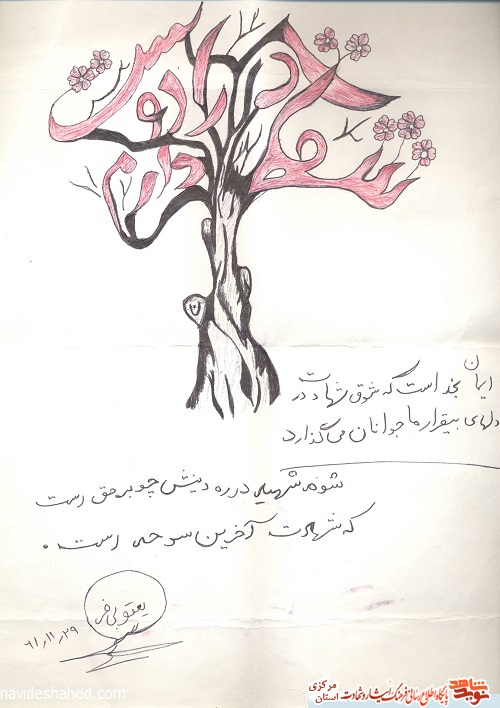 ایمان بخدا است که شوق شهادت در
دلهای بیقرار ما جوانان می‌گذارد
شوم شهید در ره دینش چو بر حق است
که شهادت آخرین سو حه است .
یعقوبی فر
۶۱٫۱۱٫۲۹
navideshahed.com
نوید شاهد
پایگاه اطلاع رسانی فرهنگ ایثار و شهادت استان مرکزی